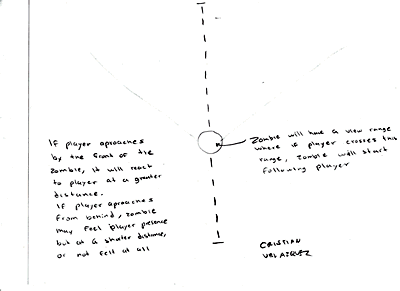 If player aproaches
by the front of the
zombie, it will react
to player at a greater
distance.
If player aproaches
from behind, zombie
may feel player presence
but at a shorter distance,
or not felt at all
Zombie will have a view range
where if player crosses this
range, zombie will start
following player
CRISTIAN
VELAZQUEZ